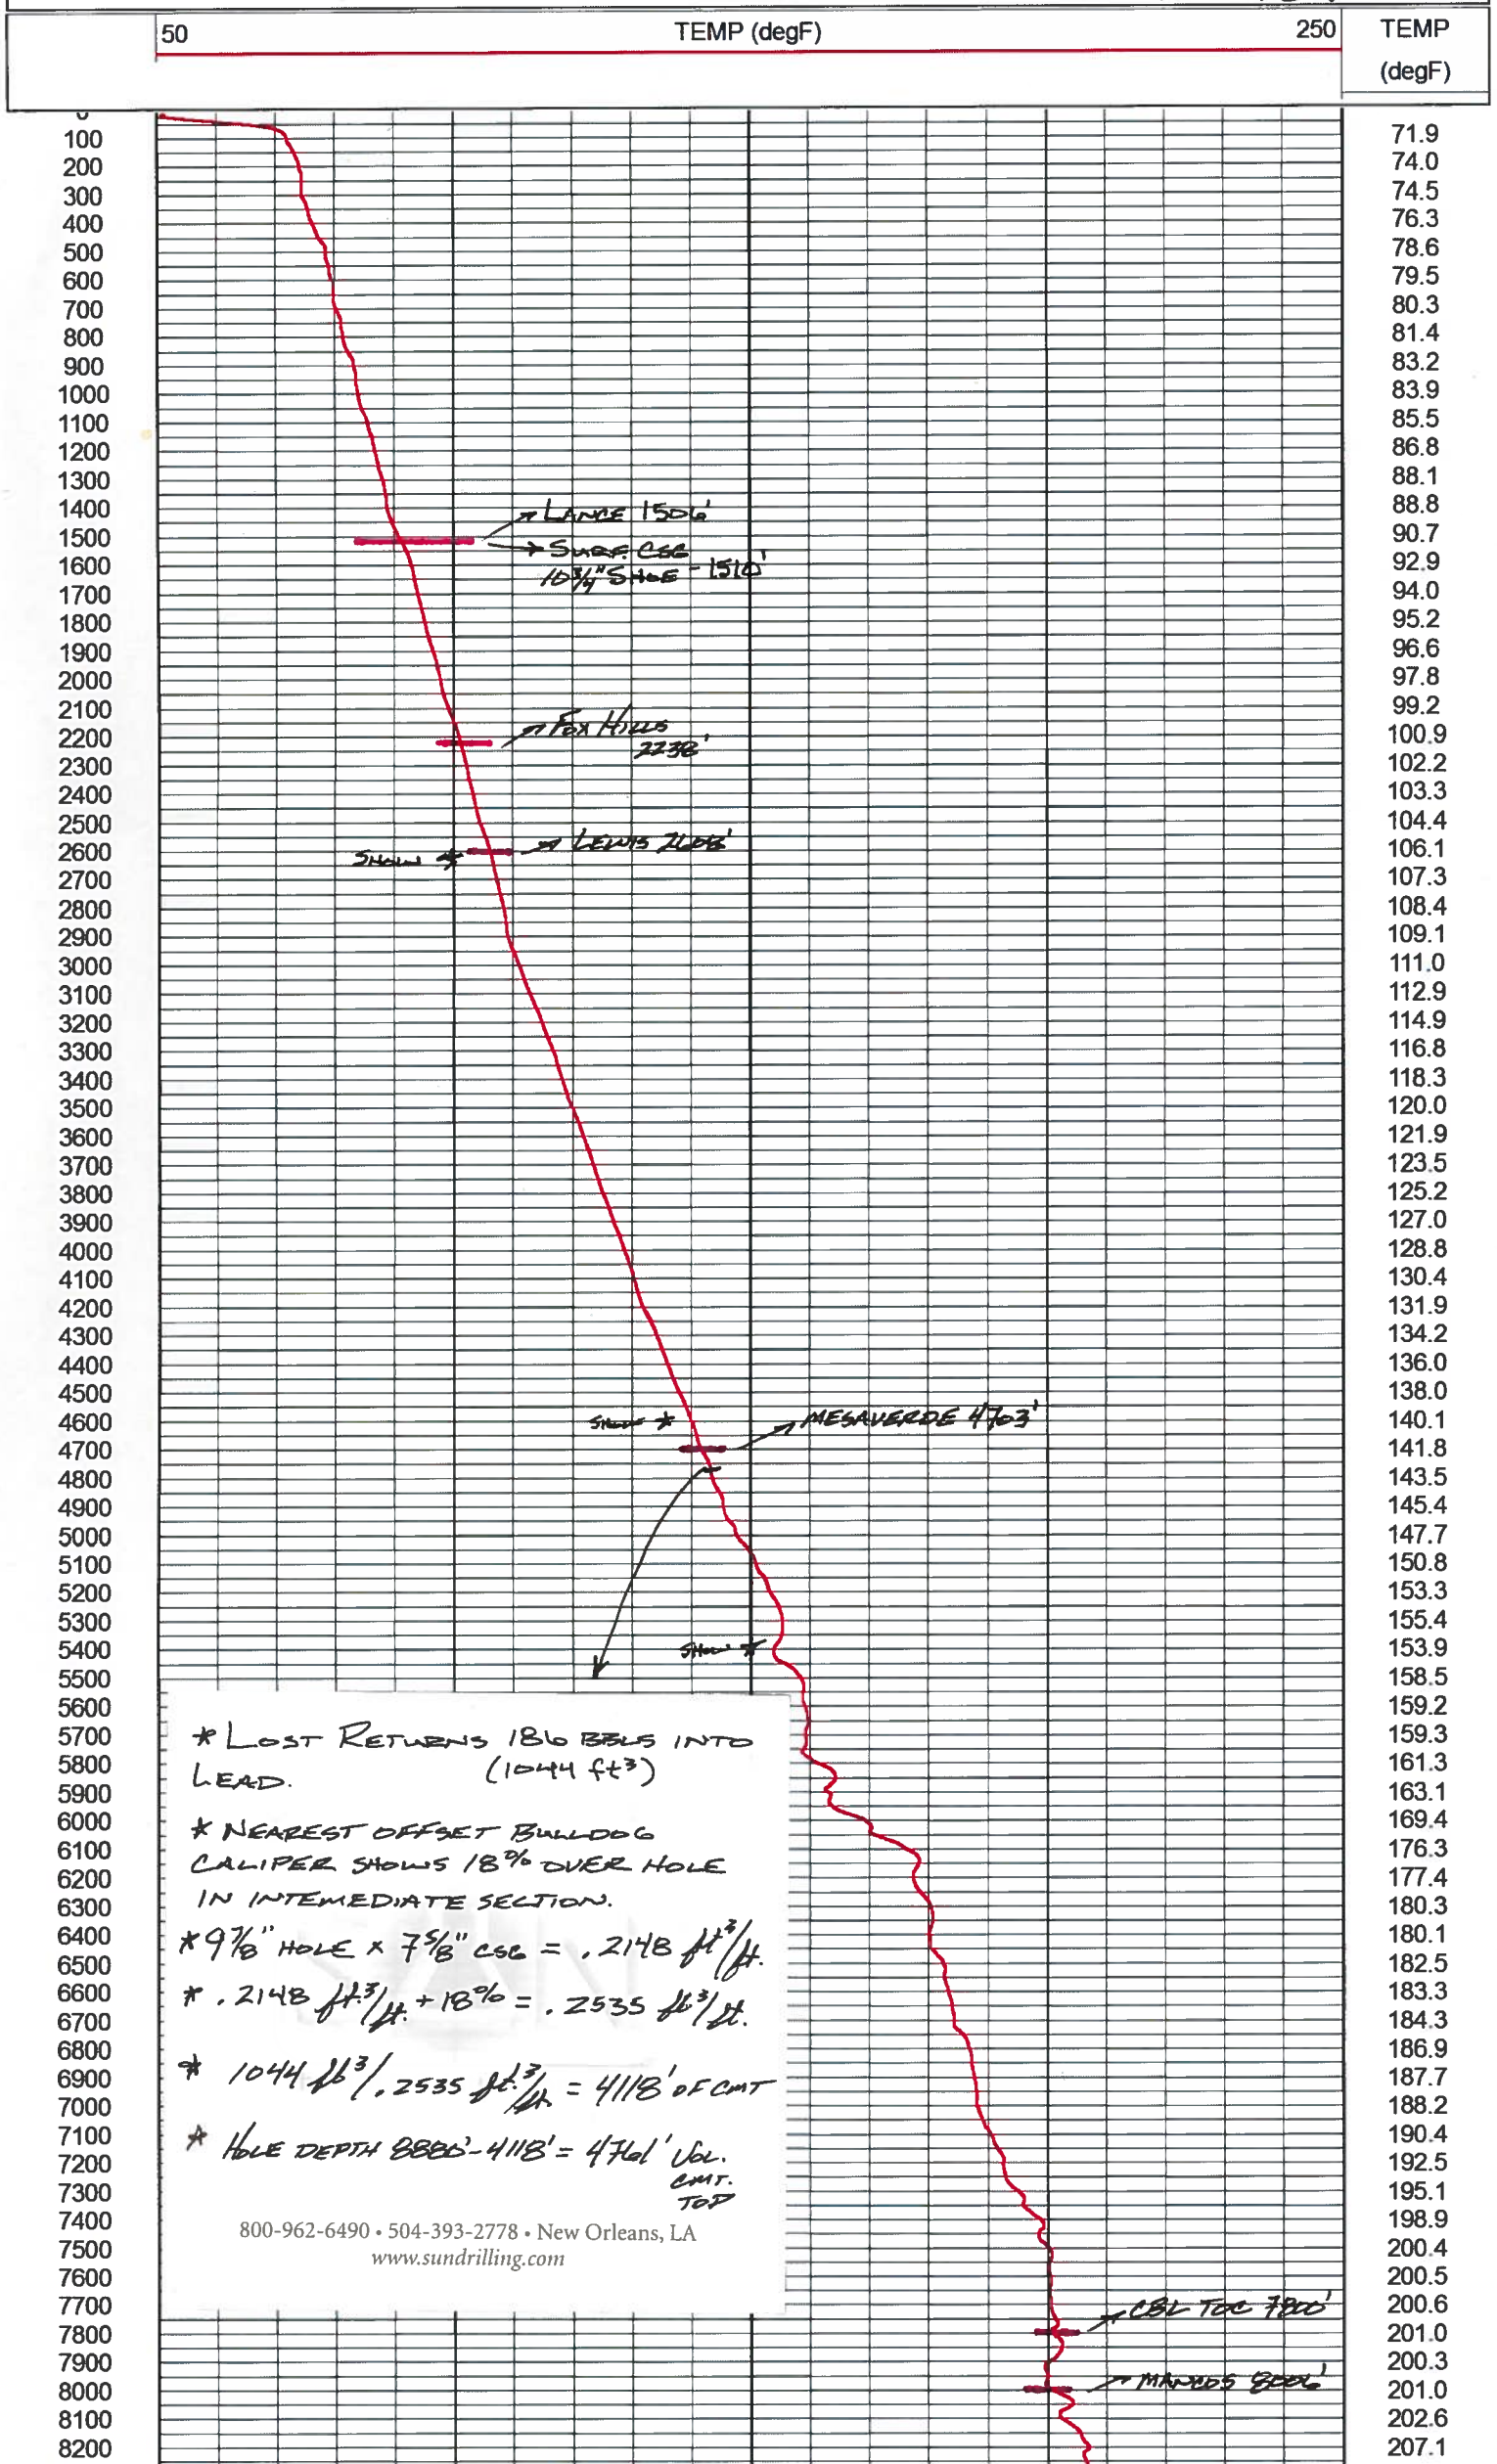 50 TEMP (degF) 250 TEMP
(degF)
0
100 71.9
200 74.0
300 74.5
400 76.3
500 78.6
600 79.5
700 80.3
800 81.4
900 83.2
1000 83.9
1100 85.5
1200 86.8
1300 88.1
1400 88.8
LANCE 1506'
1500 90.7
SURF. CSG
1600 92.9
10 3/4" SHOE - 1510'
1700 94.0
1800 95.2
1900 96.6
2000 97.8
2100 99.2
FOX HILLS
2200 100.9
2238'
2300 102.2
2400 103.3
2500 104.4
LEWIS 2608'
2600 106.1
SHOW *
2700 107.3
2800 108.4
2900 109.1
3000 111.0
3100 112.9
3200 114.9
3300 116.8
3400 118.3
3500 120.0
3600 121.9
3700 123.5
3800 125.2
3900 127.0
4000 128.8
4100 130.4
4200 131.9
4300 134.2
4400 136.0
4500 138.0
4600 SHOW * MESAVERDE 4703' 140.1
4700 141.8
4800 143.5
4900 145.4
5000 147.7
5100 150.8
5200 153.3
5300 155.4
5400 SHOW * 153.9
5500 158.5
5600 159.2
5700 159.3
5800 161.3
5900 163.1
6000 169.4
6100 176.3
6200 177.4
6300 180.3
6400 180.1
6500 182.5
6600 183.3
6700 184.3
6800 186.9
6900 187.7
7000 188.2
7100 190.4
7200 192.5
7300 195.1
7400 198.9
7500 200.4
7600 200.5
7700 CBL TOC 7800' 200.6
7800 201.0
7900 200.3
8000 MANCOS 8006' 201.0
8100 202.6
8200 207.1
* LOST RETURNS 186 BBLS INTO
LEAD. (1044 ft³)
* NEAREST OFFSET BULLDOG
CALIPER SHOWS 18% OVER HOLE
IN INTEMEDIATE SECTION.
* 9 7/8" HOLE x 7 5/8" CSG = .2148 ft³/ft.
* .2148 ft.³/ft. + 18% = .2535 ft³/ft.
* 1044 ft³/.2535 ft.³/ft. = 4118' OF CMT
* HOLE DEPTH 8880' - 4118' = 4761' VOL.
CMT.
TOP
800-962-6490 • 504-393-2778 • New Orleans, LA
www.sundrilling.com